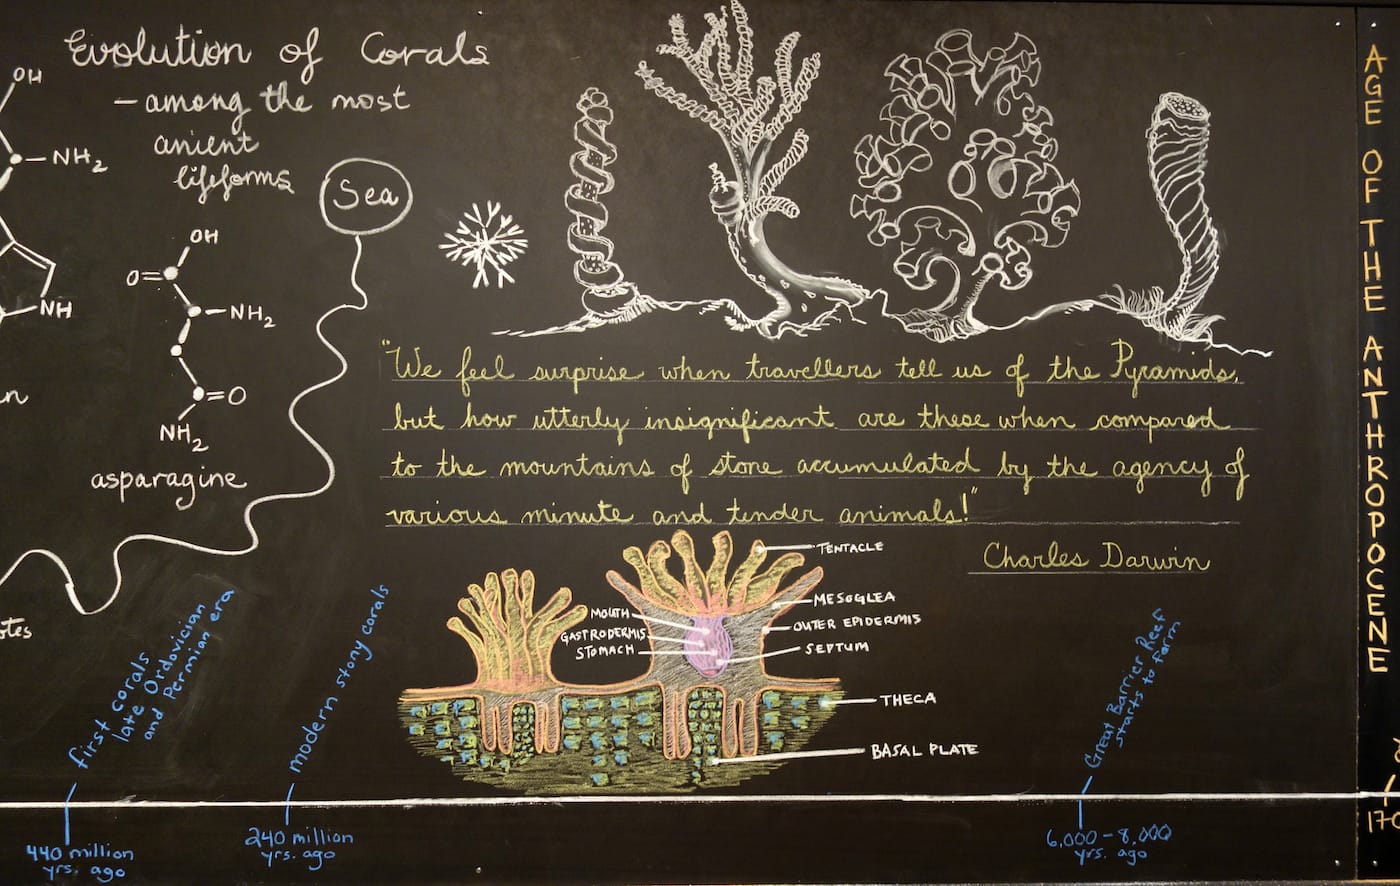 Evolution of Corals
– among the most
anient
lifeforms
OH
NH2
NH
Sea
OH
O
NH2
O
NH2
asparagine
"We feel surprise when travellers tell us of the Pyramids,
but how utterly insignificant are these when compared
to the mountains of stone accumulated by the agency of
various minute and tender animals!"
Charles Darwin
TENTACLE
MESOGLEA
OUTER EPIDERMIS
SEPTUM
MOUTH
GASTRODERMIS
STOMACH
THECA
BASAL PLATE
first corals
late Ordovician
and Permian era
440 million
yrs. ago
modern stony corals
240 million
yrs. ago
Great Barrier Reef
starts to form
6,000–8,000
yrs. ago
AGE OF THE ANTHROPOCENE